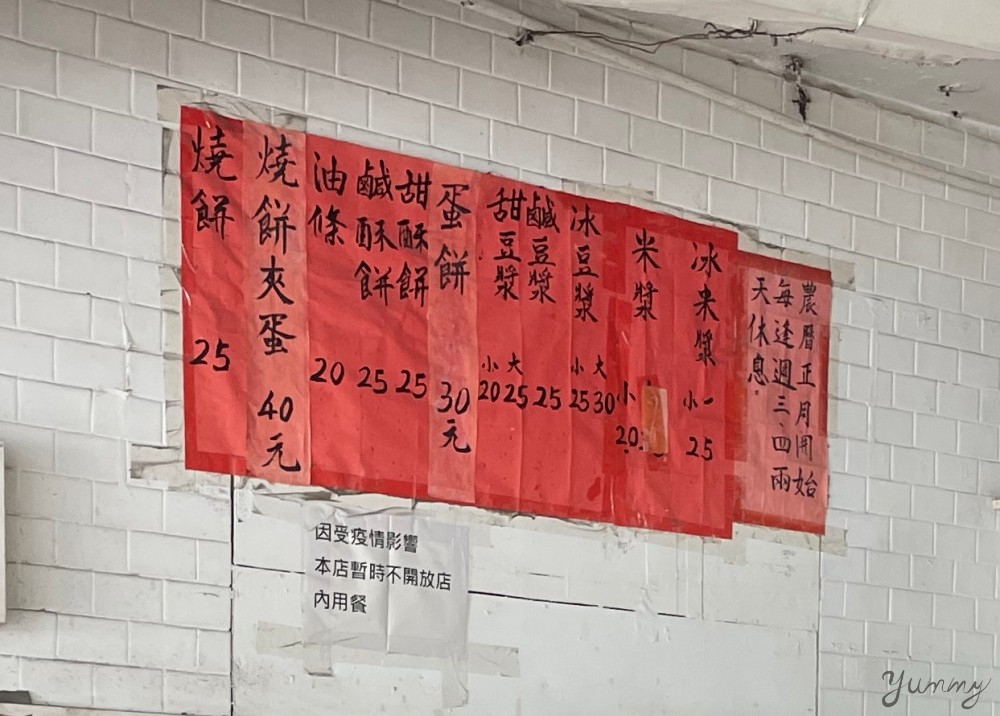 燒餅 25
燒餅夾蛋 40元
油條 20
鹹酥餅 25
甜酥餅 25
蛋餅 30元
甜豆漿 小20 大25
鹹豆漿 25
冰豆漿 小25 大30
米漿 小20
冰米漿 小 25
農曆正月開始
每逢週三四兩
天休息.
因受疫情影響
本店暫時不開放店
內用餐
Yummy